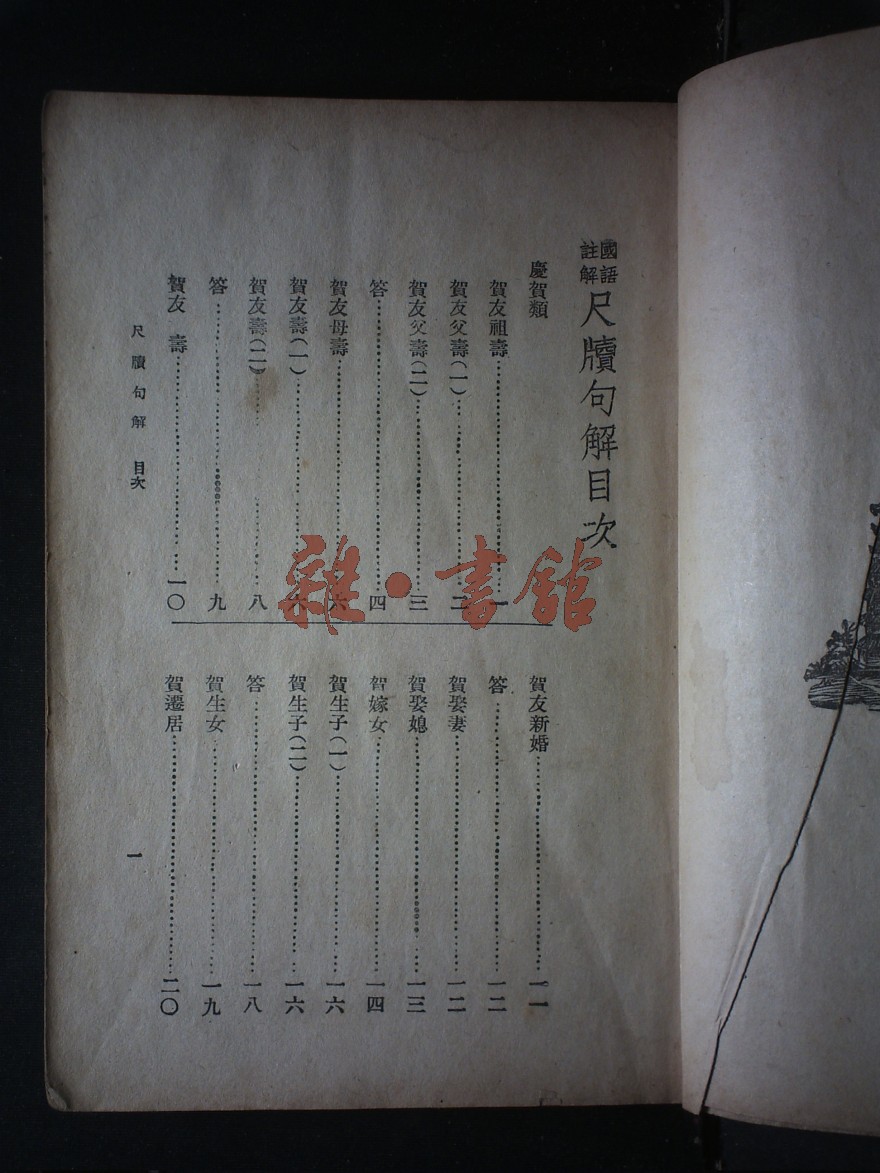 國語註解 尺牘句解目次
慶賀類
賀友祖壽 一
賀友父壽(一) 二
賀友父壽(二) 三
答 四
賀友母壽 六
賀友壽(一) 六
賀友壽(二) 八
答 九
賀友 壽 一〇
賀友新婚 一一
答 一二
賀娶妻 一二
賀娶媳 一三
賀嫁女 一四
賀生子(一) 一六
賀生子(二) 一六
答 一八
賀生女 一九
賀遷居 二〇
尺牘句解 目次
一
雜·書館